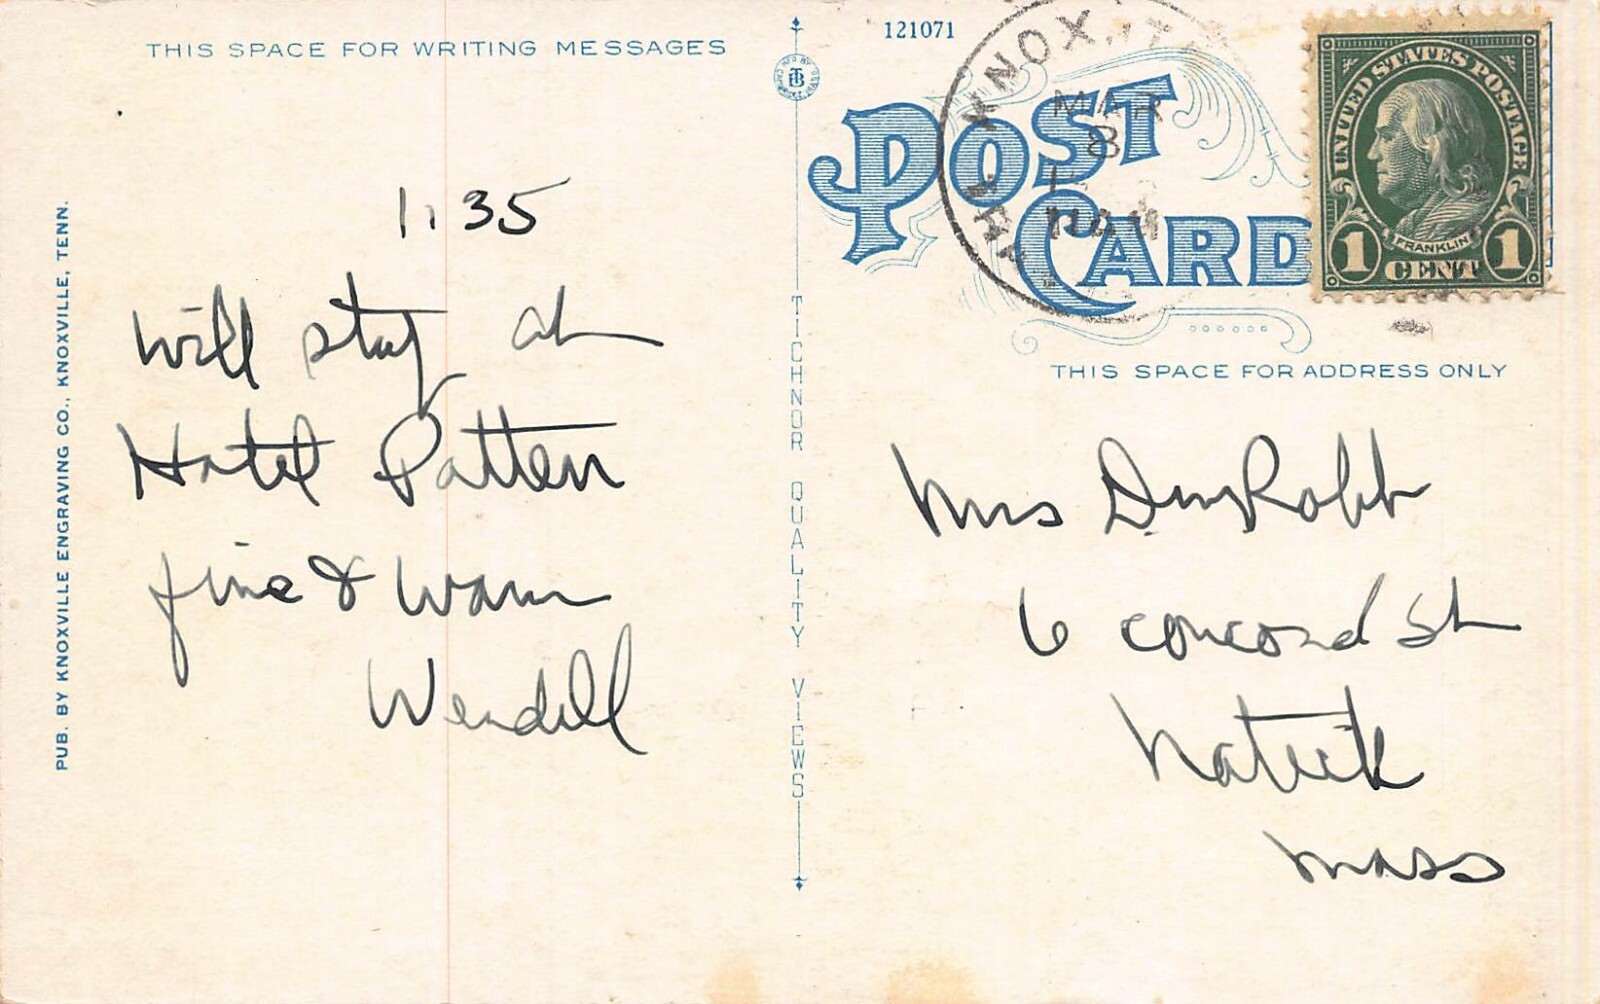 THIS SPACE FOR WRITING MESSAGES
121071
POST
CARD
KNOX
MAR
8
UNITED STATES POSTAGE
FRANKLIN
1 CENT 1
PUB. BY KNOXVILLE ENGRAVING CO., KNOXVILLE, TENN.
1:35
Will stay at
Hotel Patten
fine & warm
Wendell
TICHNOR QUALITY VIEWS
THIS SPACE FOR ADDRESS ONLY
Mrs
6 Concord St
Natick
Mass